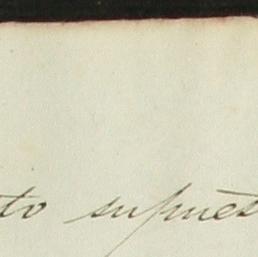 to supues